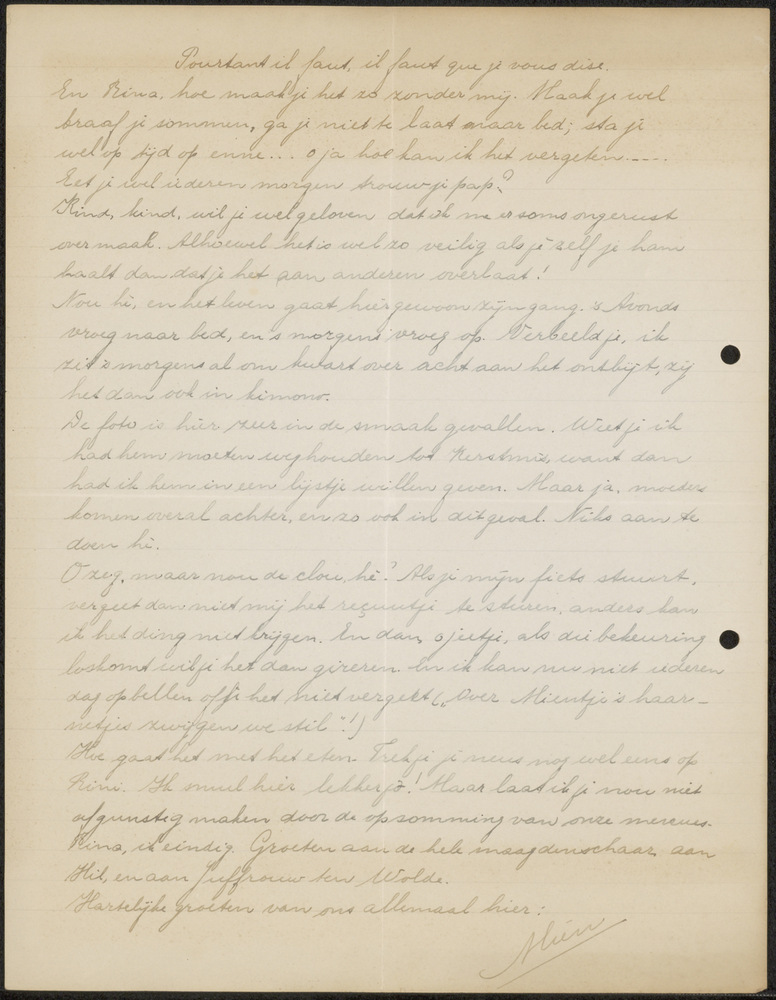 Pourtant il faut, il faut que je vous dise.
En Rina, hoe maak je het zo zonder mij. Maak je wel
braaf je sommen, ga je niet te laat naar bed; sta je
wel op tijd op enne.... o ja hoe kan ik het vergeten.....
Eet je wel iederen morgen trouw je pap?
Kind, kind, wil je wel geloven dat ik me er soms ongerust
over maak. Alhoewel het is wel zo veilig als je zelf je ham
haalt dan dat je het aan anderen overlaat!
Nou hè, en het leven gaat hier gewoon zijn gang. 's Avonds
vroeg naar bed, en 's morgens vroeg op. Verbeeld je, ik
zit 's morgens al om kwart over acht aan het ontbijt, zij
het dan ook in kimono.
De foto is hier zeer in de smaak gevallen. Weet je ik
had hem moeten weghouden tot Kerstmis, want dan
had ik hem in een lijstje willen geven. Maar ja, moeders
komen overal achter, en zo ook in dit geval. Niks aan te
doen hè.
O zeg, maar nou de clou, hè? Als je mijn fiets stuurt,
vergeet dan niet mij het reçuutje te sturen, anders kan
ik het ding niet krijgen. En dan, o jeetje, als die bekeuring
loskomt wil je het dan gireren. En ik kan nu niet iederen
dag opbellen of je het niet vergeet („Over Mientje's haar-
netjes zwijgen we stil"!)
Hoe gaat het met het eten. Trek je je neus nog wel eens op
Rini. Ik smul hier lekker jô! Maar laat ik je nou niet
afgunstig maken door de opsomming van onze menu's.
Rina, ik eindig. Groeten aan de hele maagdenschaar, aan
Hil, en aan Juffrouw ten Wolde.
Hartelijke groeten van ons allemaal hier:
Mien